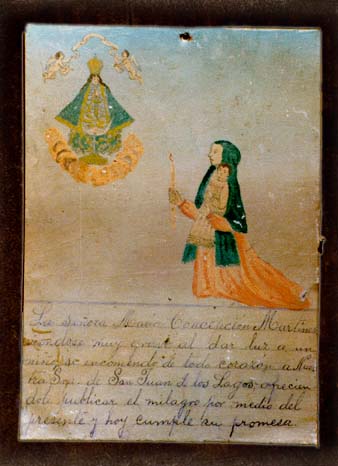 La Señora Maria Concepcion Martines
viendose muy grave al dar luz a un
niño, se encomendó de todo corazon a Nues
tra Sra. de San Juan de los Lagos, ofrecien
dole publicar el milagro por medio del
presente y hoy cumple su promesa